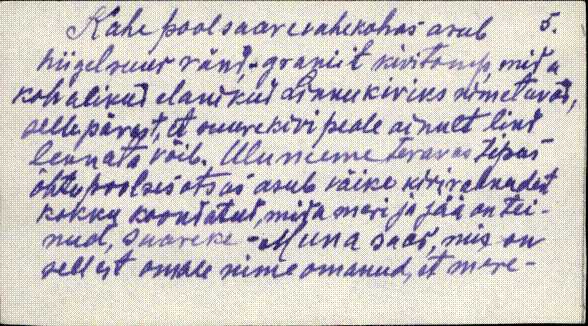 Kahe poolsaare vahekohas asub 5.
hiigelsuur ränd-graniit kivitomp, mida
kohalikud elanikud Linnukiviks nimetavad,
sellepärast, et suurekivi peale ainult lind
lennata võib. Uluneeme teravas tipus
õhtupoolses otsas asub väike kivirahnudest
kokku koondatud, mida meri ja jää on tei-
nud, saareke - Muna saar, mis on
sellest omale nime omanud, et mere-